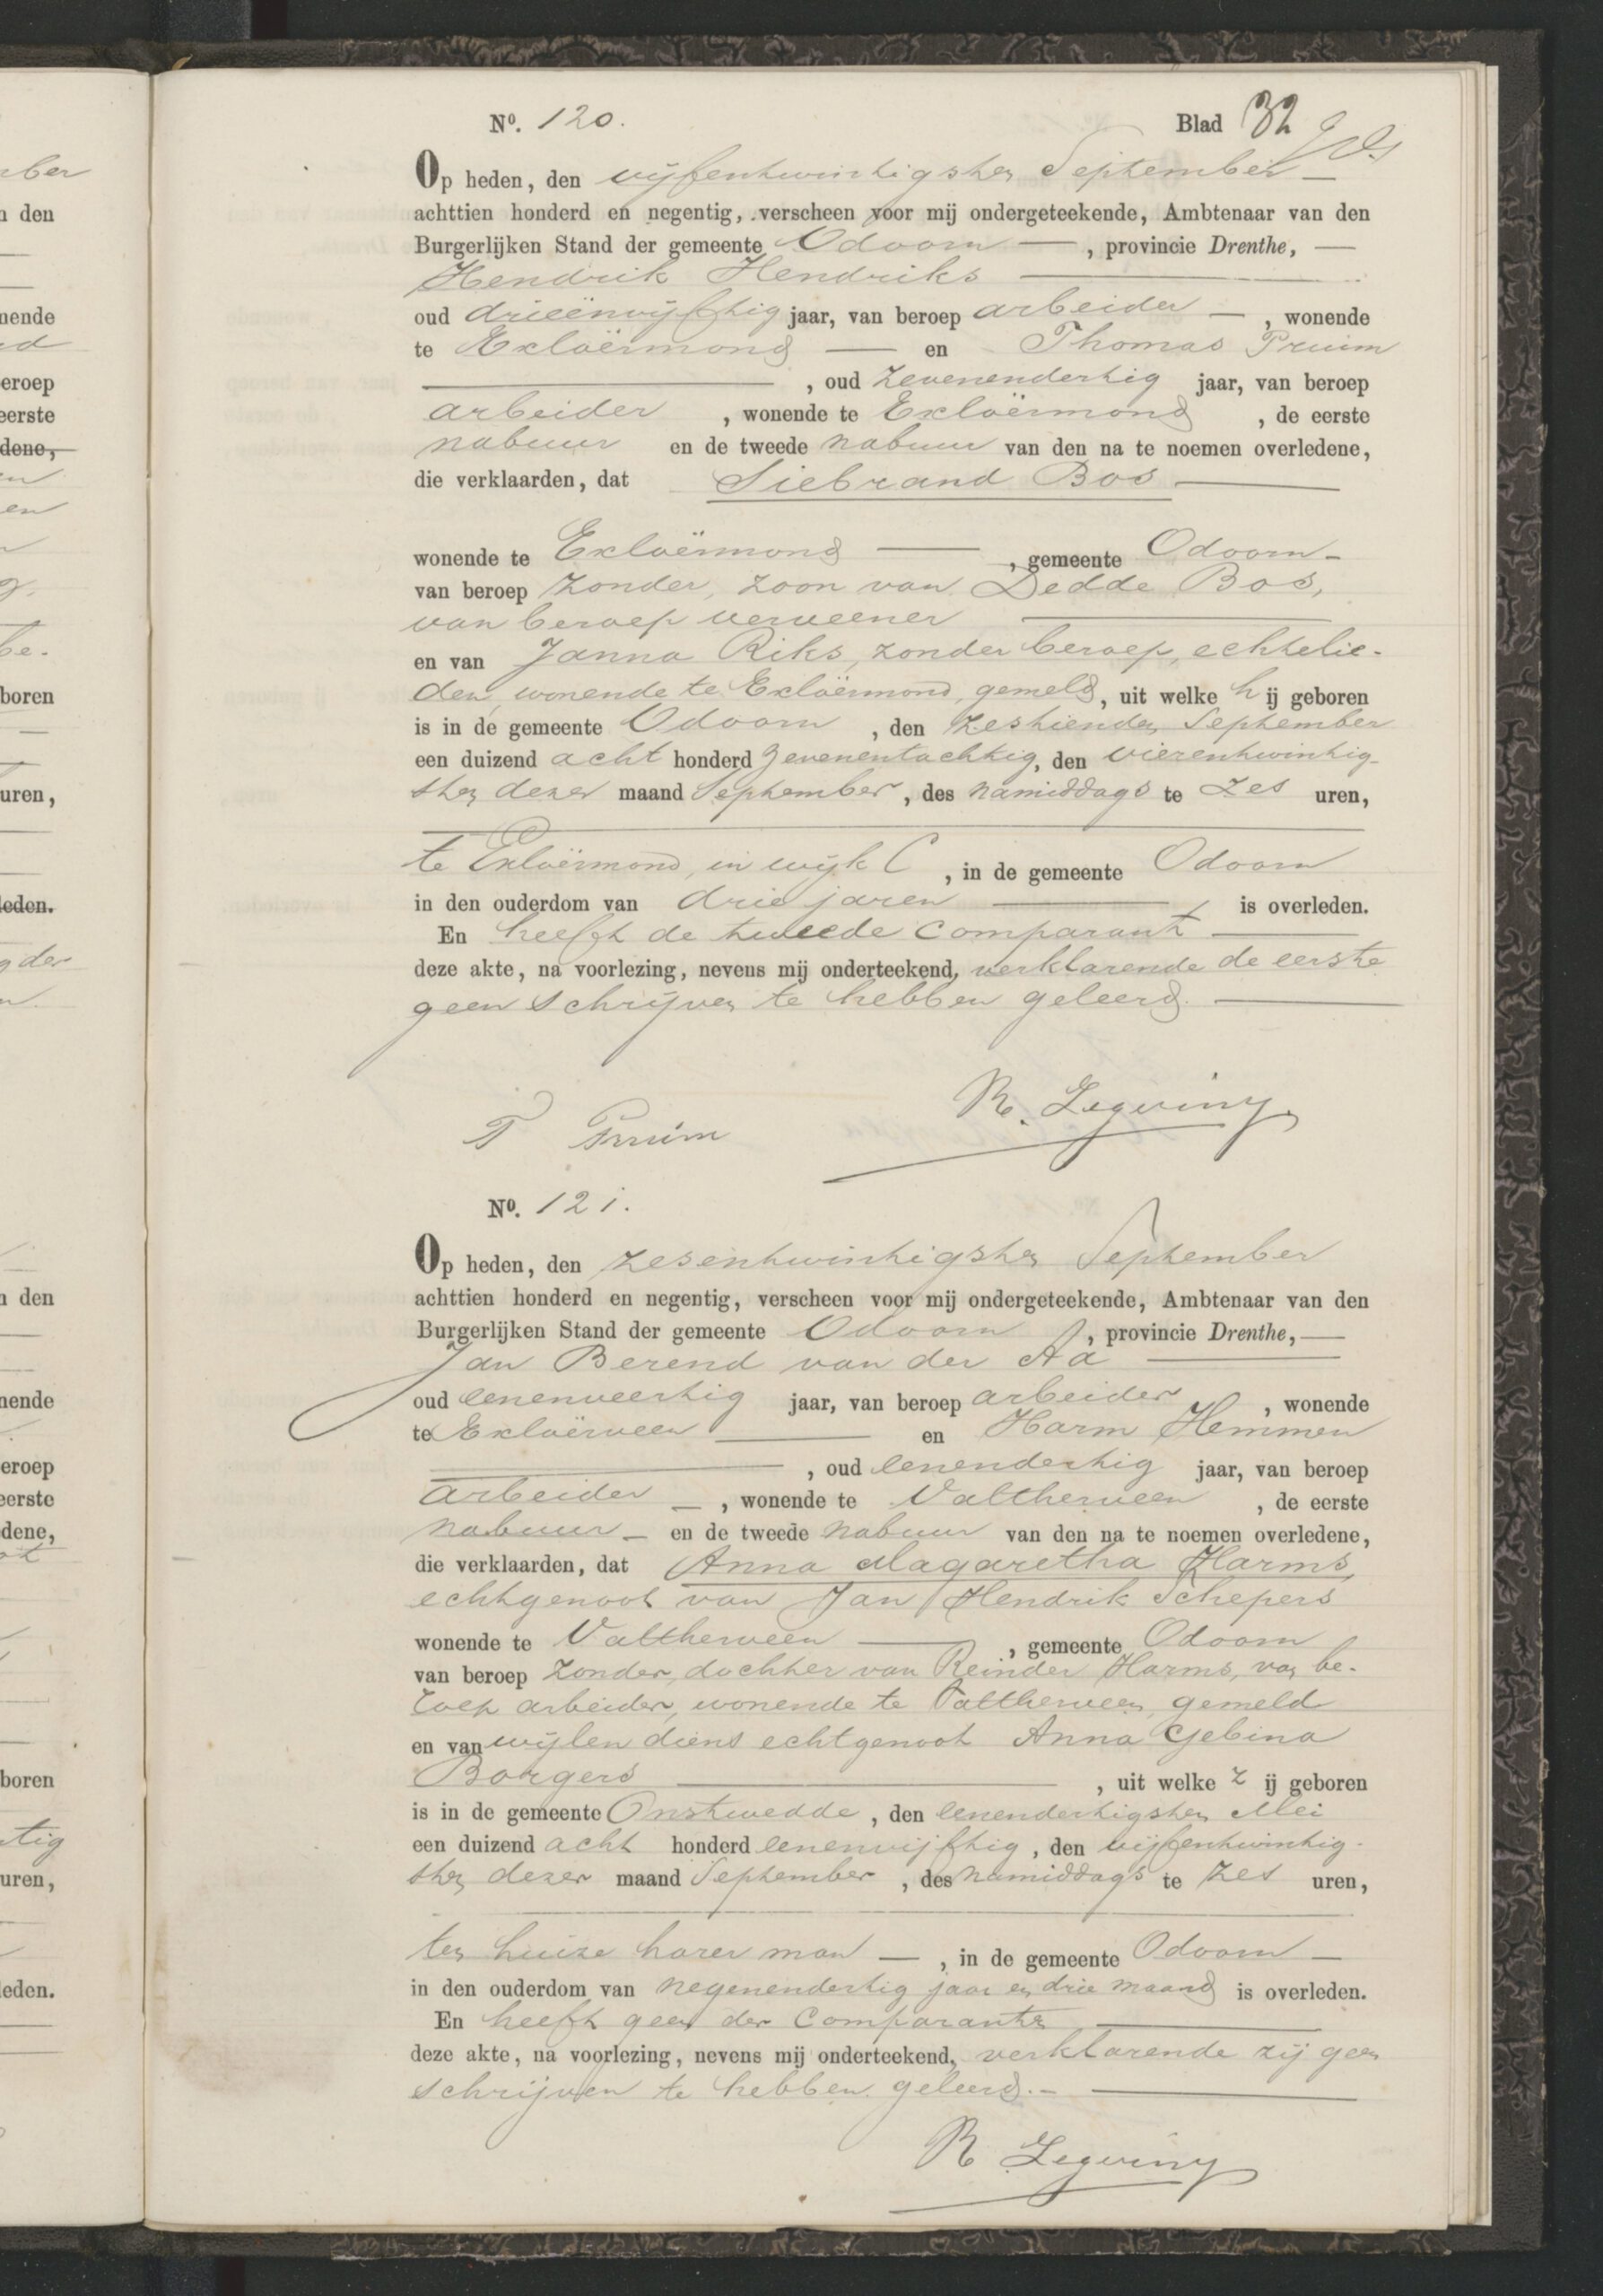 ber
n den
nende
ed
eroep
eerste
dene,
en
be.
boren
uren,
leden.
g der
n den
nende
eroep
eerste
dene,
boren
tig
uren,
leden.
Nº. 120. Blad 32
Op heden, den vijfentwintigsten September
achttien honderd en negentig, verscheen voor mij ondergeteekende, Ambtenaar van den
Burgerlijken Stand der gemeente Odoorn, provincie Drenthe,
Hendrik Hendriks
oud drieënvijftig jaar, van beroep arbeider, wonende
te Exloërmond en Thomas Pruim
, oud zevenendertig jaar, van beroep
arbeider, wonende te Exloërmond, de eerste
nabuur en de tweede nabuur van den na te noemen overledene,
die verklaarden, dat Siebrand Bos
wonende te Exloërmond, gemeente Odoorn
van beroep zonder, zoon van Dedde Bos,
van beroep verveener
en van Janna Riks, zonder beroep, echtelie-
den, wonende te Exloërmond, gemeld, uit welke hij geboren
is in de gemeente Odoorn, den zestienden September
een duizend acht honderd zevenentachtig, den vierentwintig-
sten dezer maand September, des namiddags te zes uren,
te Exloërmond, in wijk C, in de gemeente Odoorn
in den ouderdom van drie jaren is overleden.
En heeft de tweede comparant
deze akte, na voorlezing, nevens mij onderteekend, verklarende de eerste
geen schrijven te hebben geleerd.
R. Legwiny
T Pruim
Nº. 121.
Op heden, den zesentwintigsten September
achttien honderd en negentig, verscheen voor mij ondergeteekende, Ambtenaar van den
Burgerlijken Stand der gemeente Odoorn, provincie Drenthe,
Jan Berend van der Aa
oud eenenveertig jaar, van beroep arbeider, wonende
te Exloërveen en Harm Hemmen
, oud eenendertig jaar, van beroep
arbeider, wonende te Valtherveen, de eerste
nabuur en de tweede nabuur van den na te noemen overledene,
die verklaarden, dat Anna Magaretha Harms,
echtgenoot van Jan Hendrik Schepers
wonende te Valtherveen, gemeente Odoorn
van beroep zonder, dochter van Reinder Harms, van be-
roep arbeider, wonende te Valtherveen, gemeld
en van wijlen diens echtgenoot Anna Gebina
Borgers, uit welke zij geboren
is in de gemeente Onstwedde, den eenendertigsten Mei
een duizend acht honderd eenenvijftig, den vijfentwintig-
sten dezer maand September, des namiddags te zes uren,
ten huize harer man, in de gemeente Odoorn
in den ouderdom van negenendertig jaar en drie maand is overleden.
En heeft geen der Comparanten
deze akte, na voorlezing, nevens mij onderteekend, verklarende zij geen
schrijven te hebben geleerd.
R Legwiny